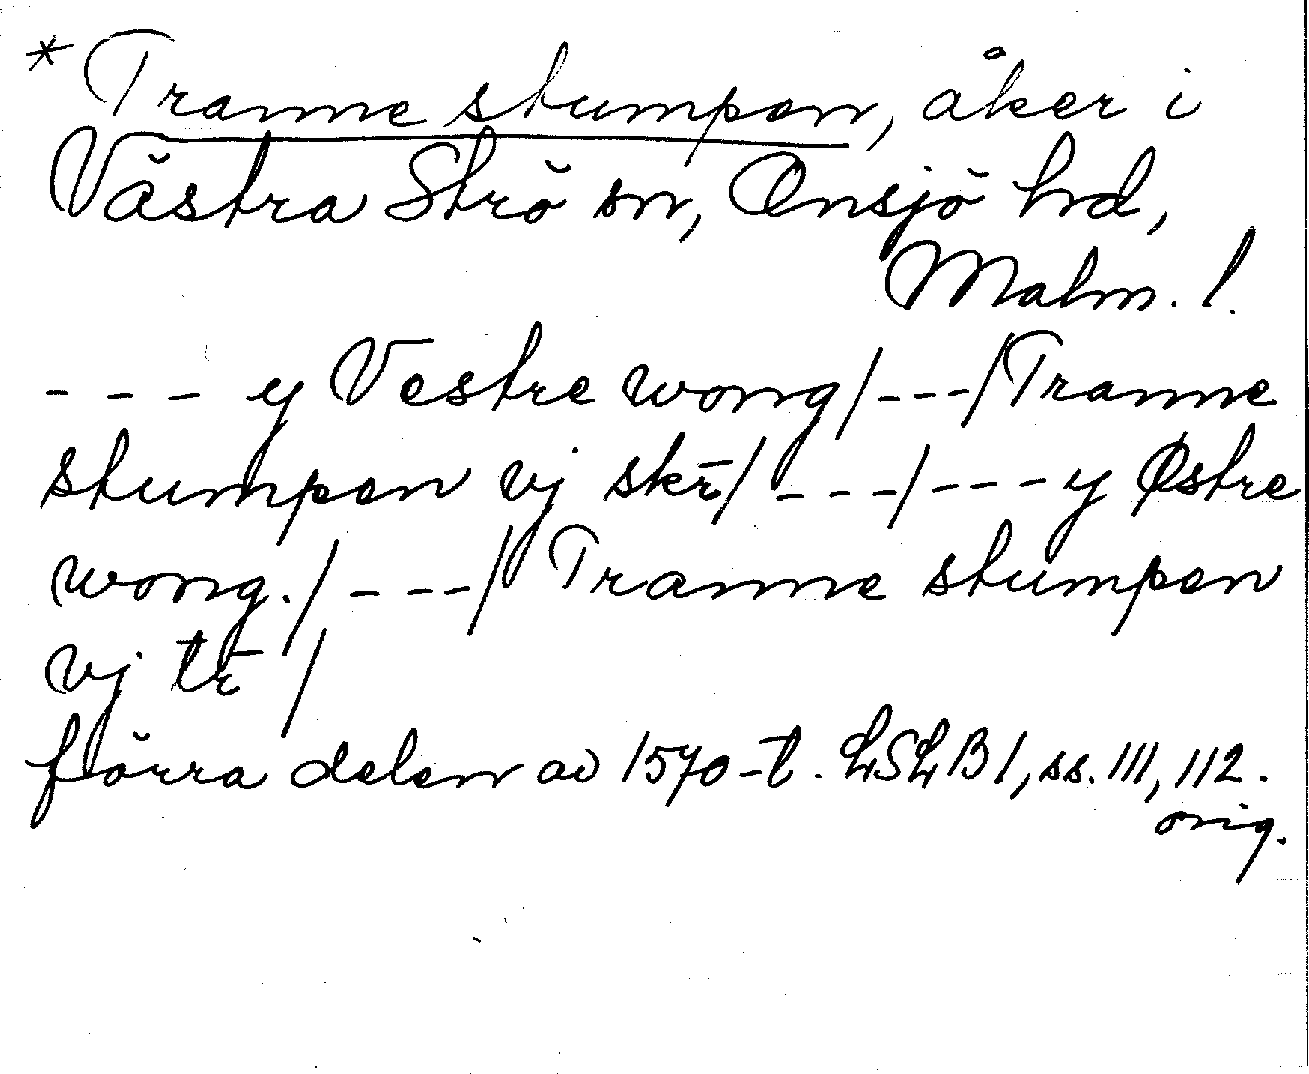 * Tranne stumpen, åker i
Västra Strö sn, Onsjö hd,
Malm. l.
- - - y Vestre wong/---/Tranne
stumpen vj skr̄/ ---/---y Østre
wong./---/ Tranne stumpen
vj tr̄ /
förra delen av 1570-t. LSLB1, ss. 111, 112.
orig.